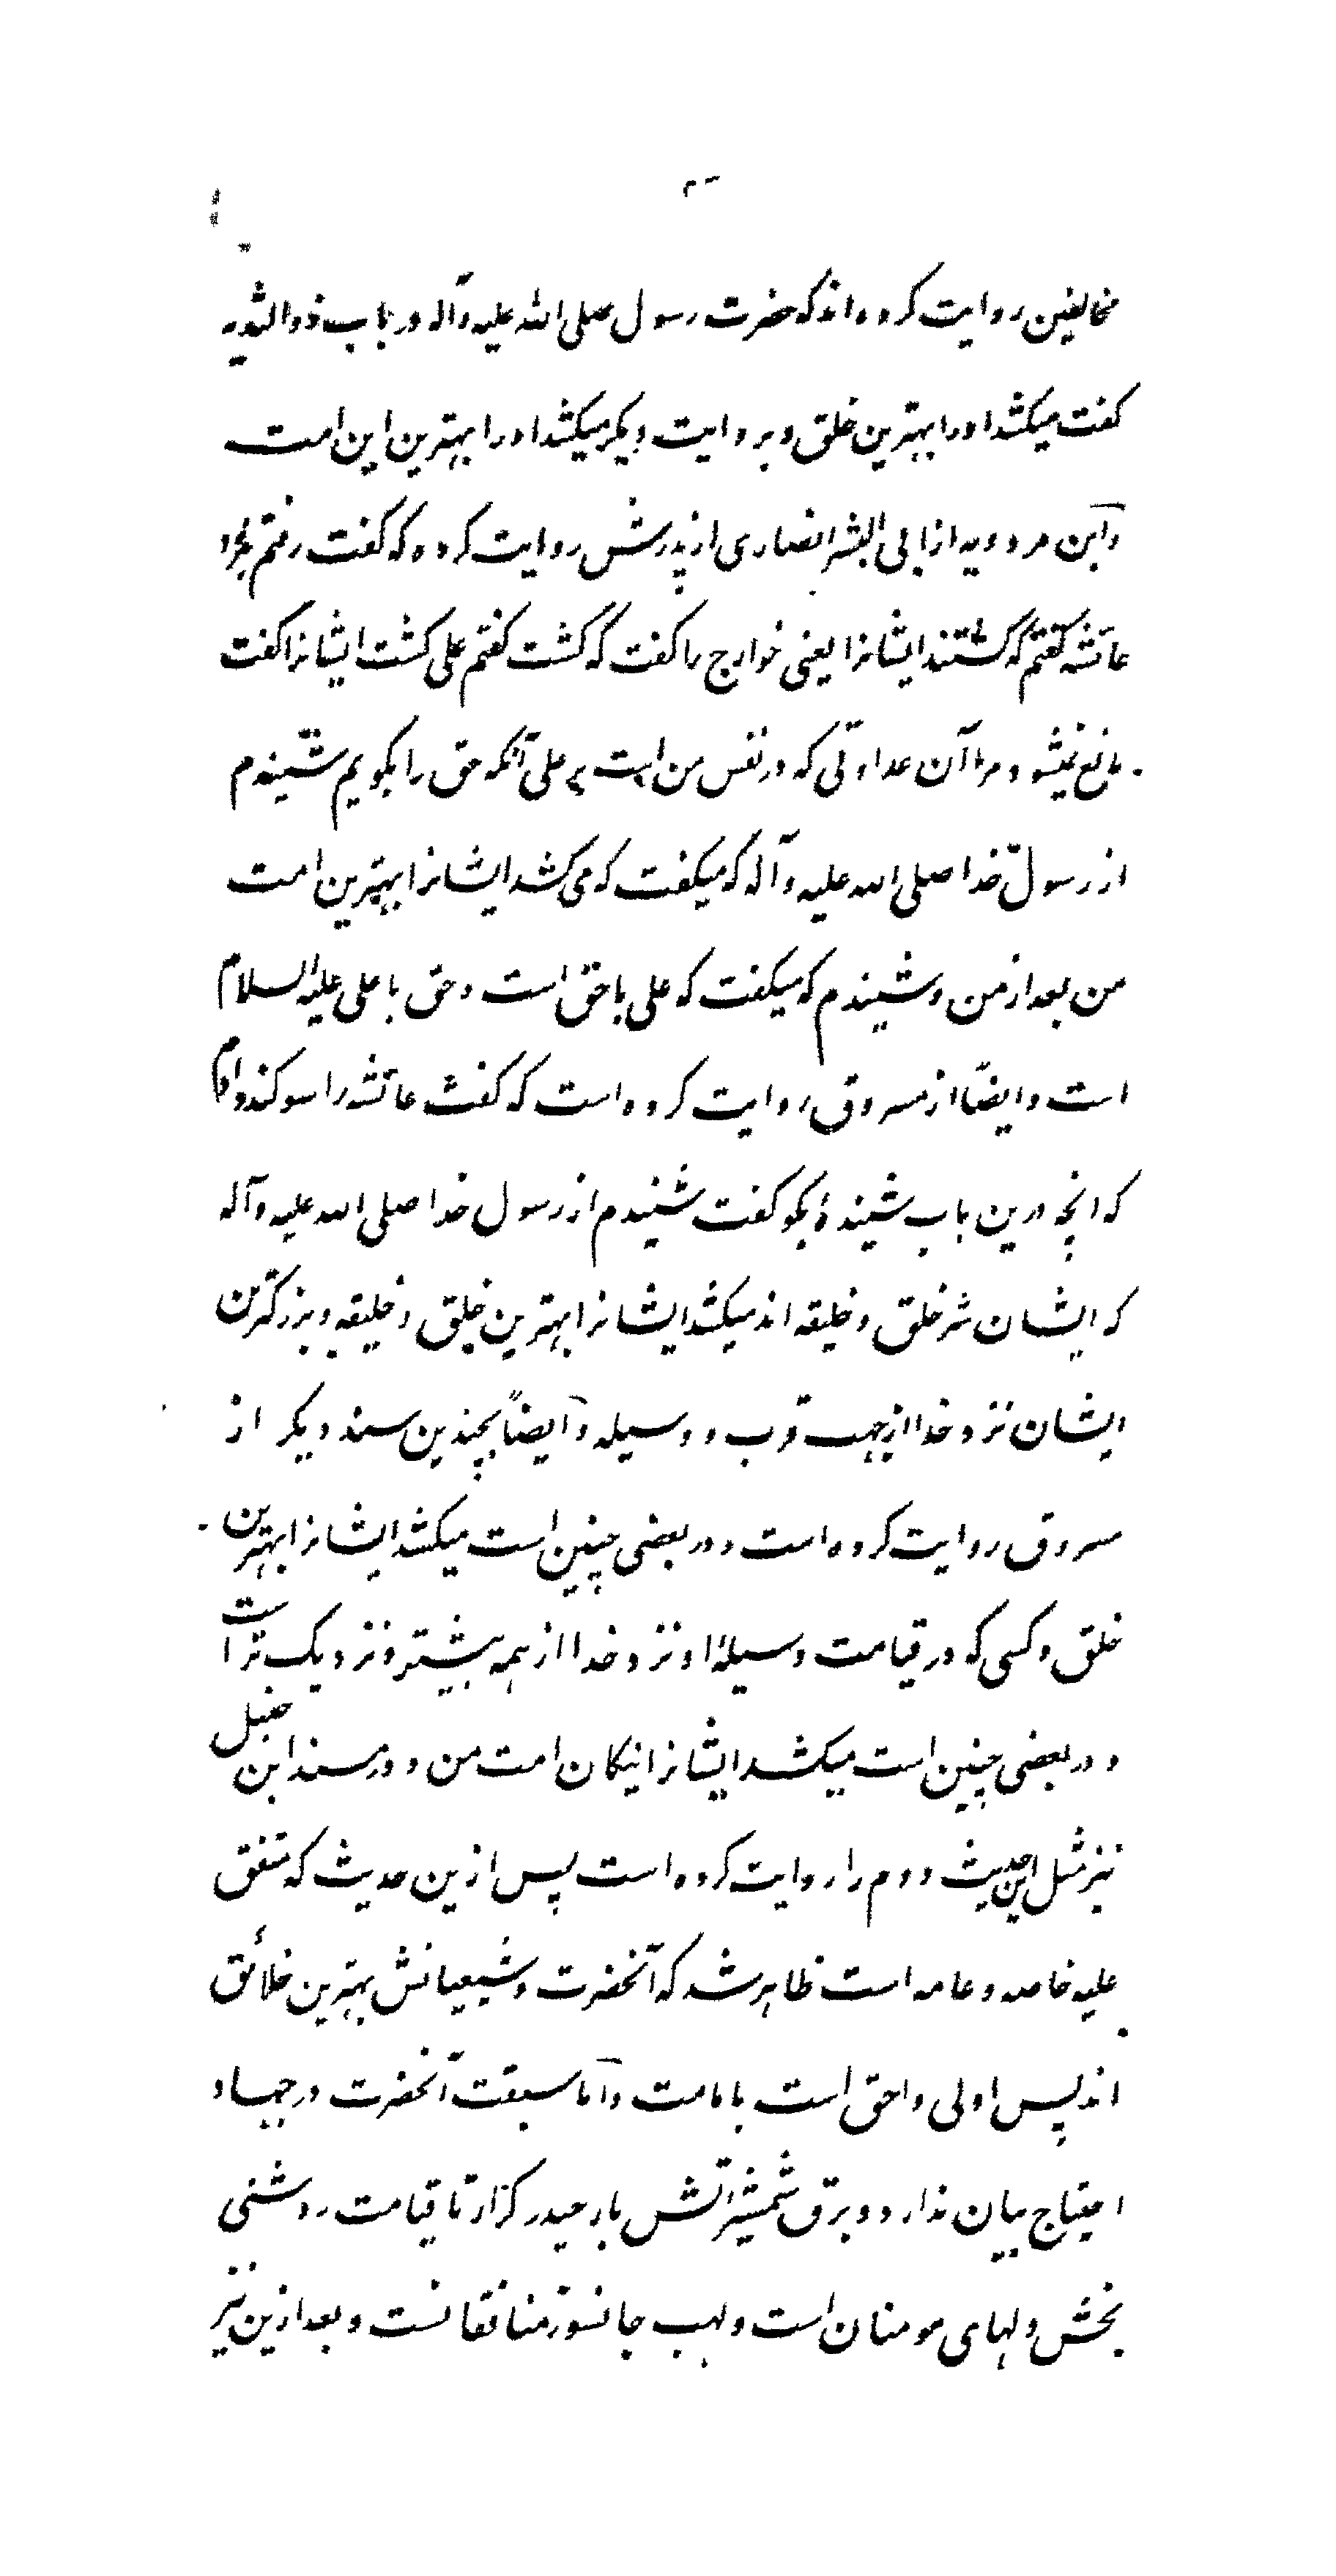 مخالفین روایت کرده‌اند که حضرت رسول صلی الله علیه وآله در باب ذوالثدیه
گفت میکشد اورا بهترین خلق و بروایت دیگر میکشد اورا بهترین این امت
وابن مردویه از ابی الیشر انصاری از پدرش روایت کرده که گفت رفتم بنزد
عائشه گفتم که کشتند ایشانرا یعنی خوارج را گفت که کشت گفتم علی کشت ایشانرا گفت
مانع نمیشود مرا آن عداوتی که در نفس من است بر علی آنکه حق را بگویم شنیدم
از رسول خدا صلی الله علیه وآله که میگفت که می کشد ایشانرا بهترین امت
من بعد از من و شنیدم که میگفت که علی با حق است و حق با علی علیه السلام
است وایضاً از مسروق روایت کرده است که گفت عائشه را سوگند دادم
که انچه درین باب شنیدهٔ بگو گفت شنیدم از رسول خدا صلی الله علیه وآله
که ایشان شر خلق و خلیقه اند میکشد ایشانرا بهترین خلق و خلیقه و بزرگترین
ایشان نزد خدا از جهت قرب و وسیله وایضاً بچندین سند دیگر از
مسروق روایت کرده است و در بعضی چنین است میکشد ایشانرا بهترین
خلق و کسی که در قیامت وسیلهٔ او نزد خدا از همه بیشتر و نزدیک تر است
و در بعضی چنین است میکشد ایشانرا نیکان امت من و در مسند ابن حنبل
نیز مثل این حدیث دوم را روایت کرده است پس ازین حدیث که متفق
علیه خاصه و عامه است ظاهر شد که آنحضرت و شیعیانش بهترین خلائق
اند پس اولی و احق است بامامت واما سبقت آنحضرت در جهاد
احتیاج بیان ندارد و برق شمشیر آتش بار حیدر کرار تا قیامت روشنی
بخش دلهای مومنان است و لهب جانسوز منافقانست و بعد ازین نیز